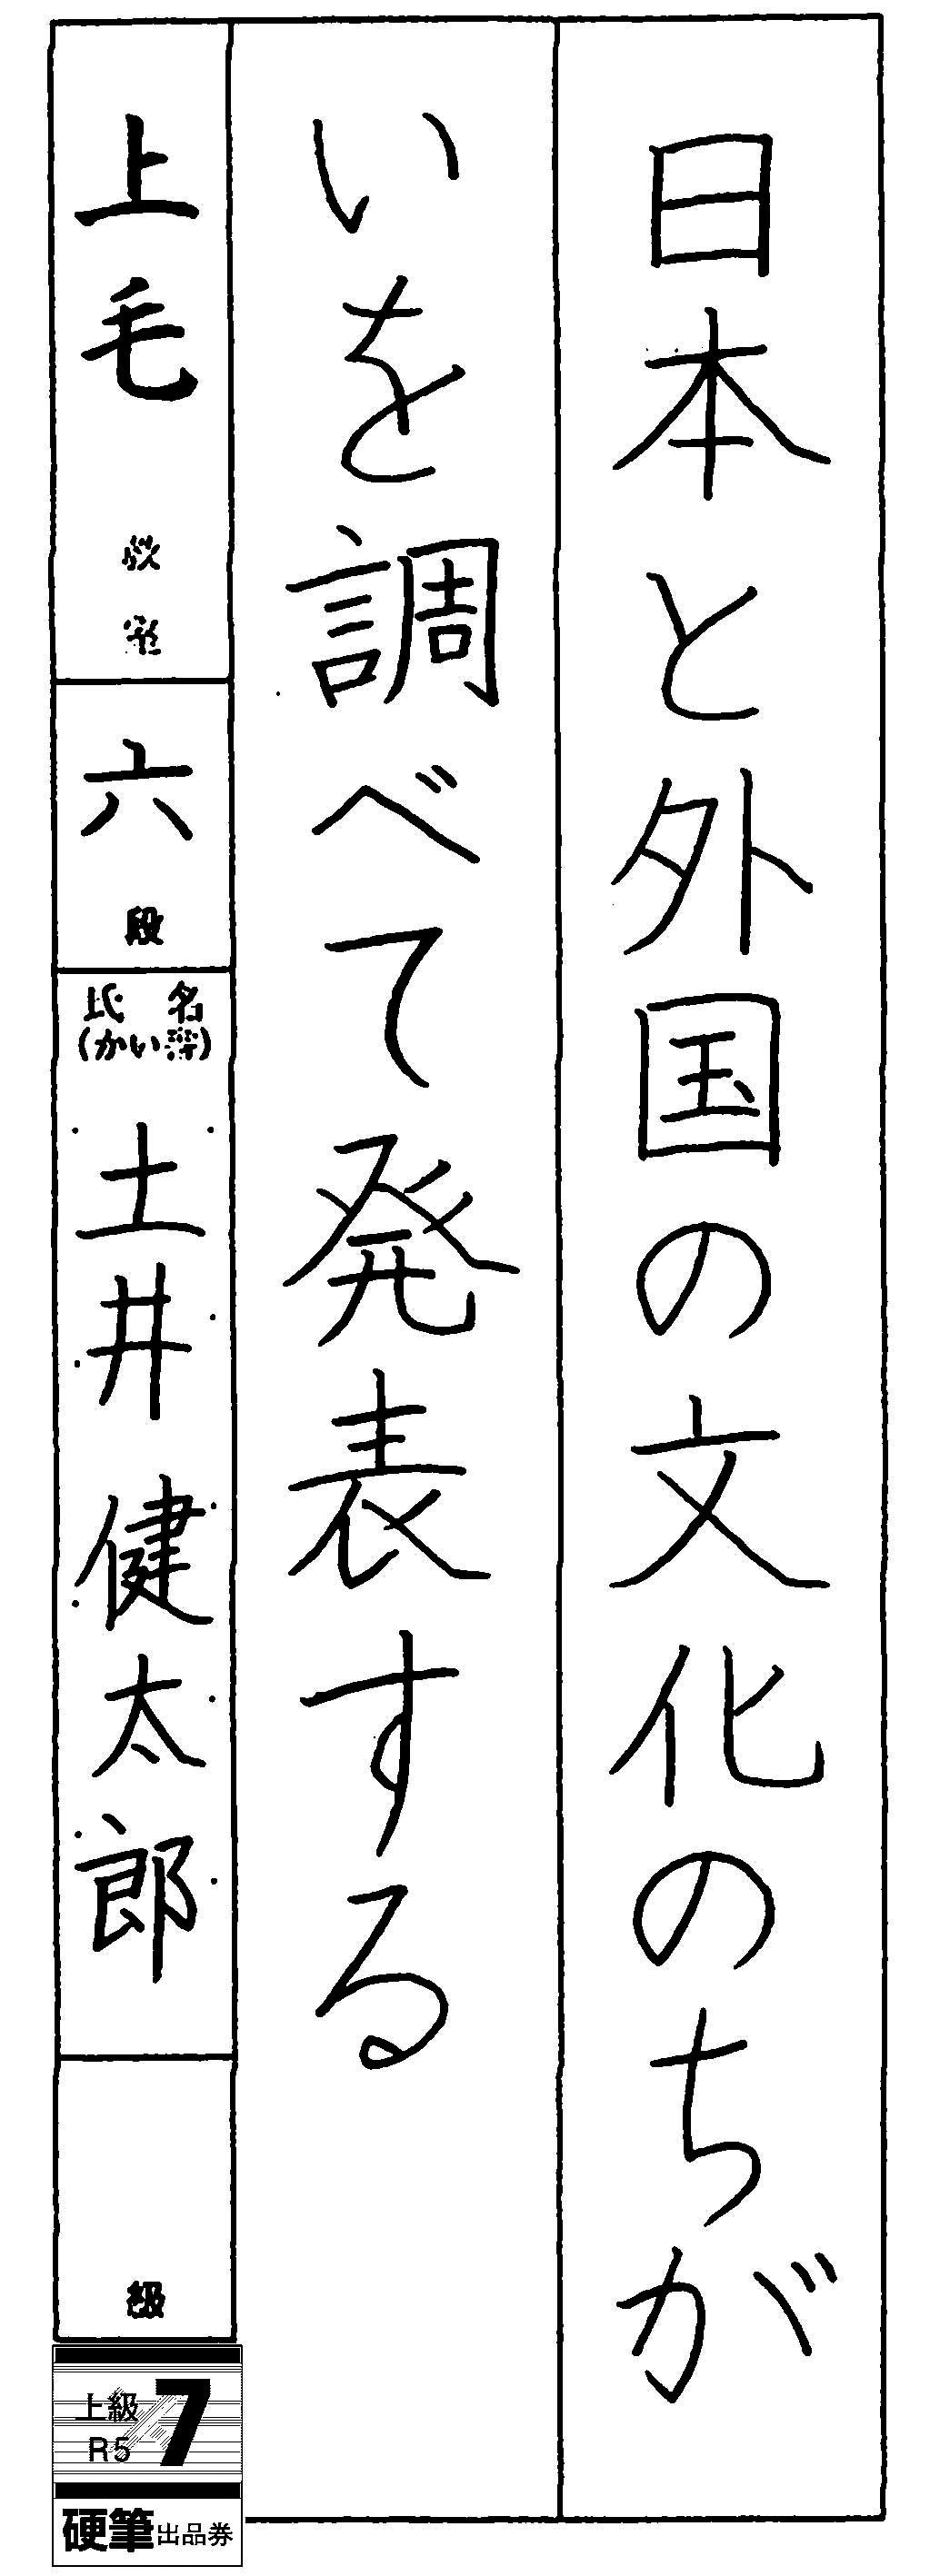 日本と外国の文化のちが
いを調べて発表する
上毛 教室
六 段
氏名
(かい書)
土井健太郎
級
上級
R5
7
硬筆出品券